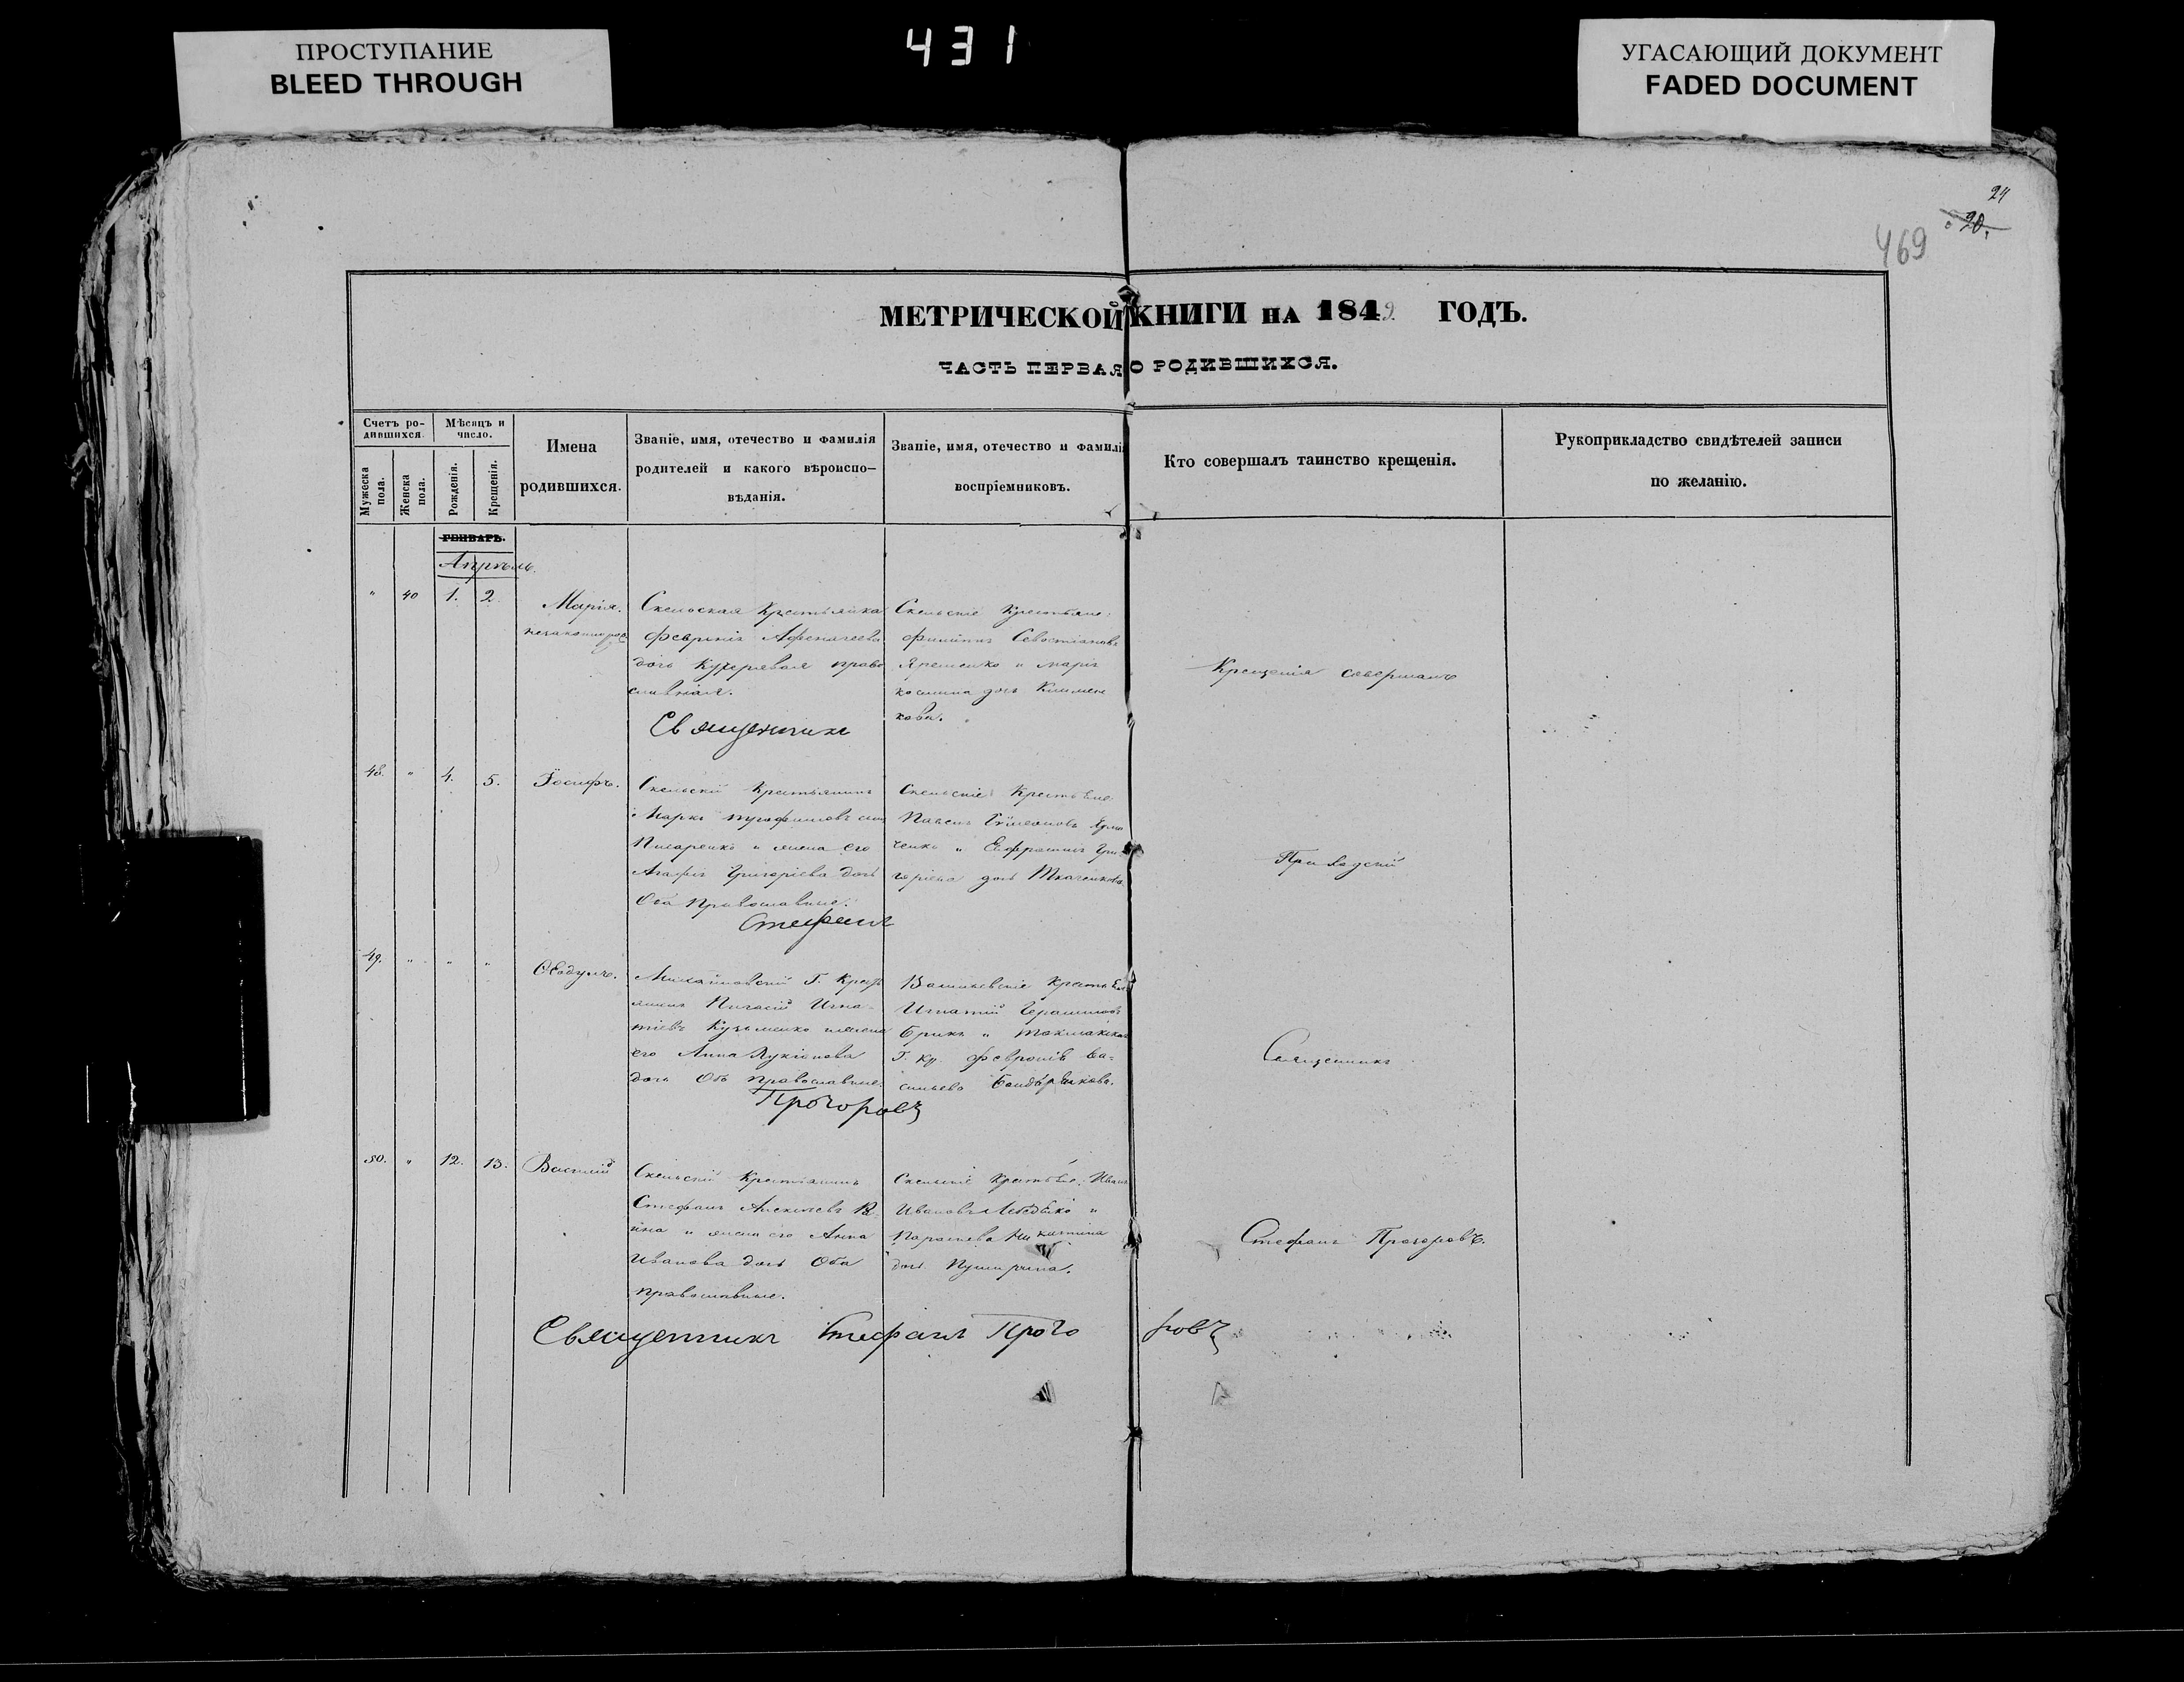 ПРОСТУПАНИЕ
BLEED THROUGH
431
УГАСАЮЩИЙ ДОКУМЕНТ
FADED DOCUMENT
24
20.
469
МЕТРИЧЕСКОЙ КНИГИ НА 1849 ГОДЪ.
ЧАСТЬ ПЕРВАЯ О РОДИВШИХСЯ.
Счетъ ро-
дившихся.
Мужеска
пола.
Женска
пола.
Мѣсяцъ и
число.
Рожденія.
Крещенія.
Имена
родившихся.
Званіе, имя, отечество и фамилія
родителей и какого вѣроиспо-
вѣданія.
Званіе, имя, отечество и фамилі
воспріемниковъ.
Кто совершалъ таинство крещенія.
Рукоприкладство свидѣтелей записи
по желанію.
ГЕНВАРЬ.
Апрѣль.
" 40 1. 2.
Марія.
Скельская Крестьянка
дочь Кучерявая право
славная.
Скельскіе Крестьяне
Филиппъ Севостіановъ
Яременко и Марія
Космина дочь Климен
кова.
Крещенія совершалъ
Священникъ
48. " 4. 5.
Іосифъ.
Скельскій Крестьянинъ
Марко Трофимовъ сынъ
Писаренко и жена его
Агафія Григоріева дочь
Оба Православные.
Скельскіе Крестьяне
Павелъ Симеоновъ
ченко и Евфросинія Гри
горіева дочь Ткаченкова
Приходскій
Стефанъ
49. " " "
Михайловскій Г. Крестъ
янинъ Игна-
тіевъ Кузьменко и жена
его Анна Лукіанова
дочь Оба православные.
Васильевскіе Крестьяне
Игнатій Герасимовъ
Брикъ и Токмакская
Г. кр. Февронія Ва-
сильева Бондаренкова.
Священникъ
Прогоровъ
50. " 12. 13.
Василій
Скельскій Крестьянинъ
Стефанъ Алексіевъ
и жена его Анна
Иванова дочь Оба
православные.
Скельскіе Крестьяне: Иванъ
Ивановъ Лебедько и
Параскева Никитина
дочь
Стефанъ Прогоровъ.
Священникъ Стефанъ Прогоровъ